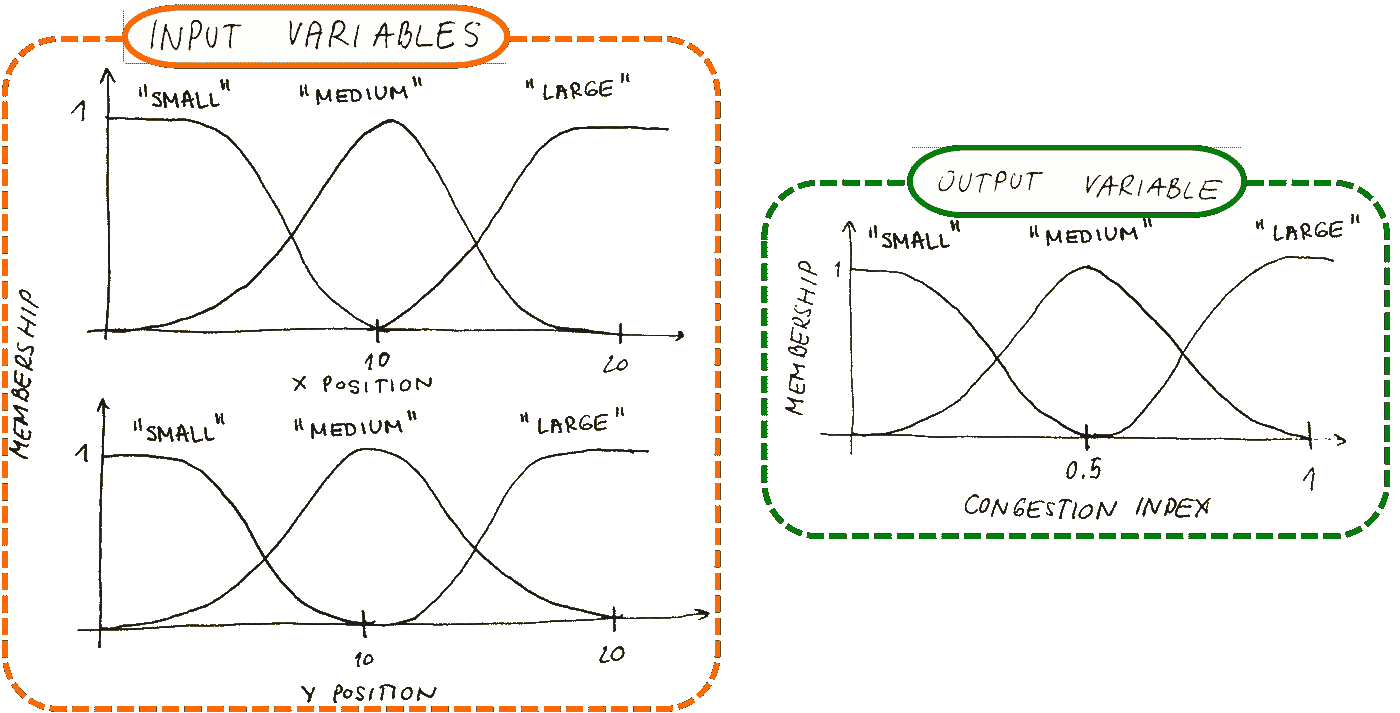 INPUT VARIABLES
"SMALL" "MEDIUM" "LARGE"
1
10 20
X POSITION
MEMBERSHIP
"SMALL" "MEDIUM" "LARGE"
1
10 20
Y POSITION
OUTPUT VARIABLE
"SMALL" "MEDIUM" "LARGE"
1
MEMBERSHIP
0.5 1
CONGESTION INDEX